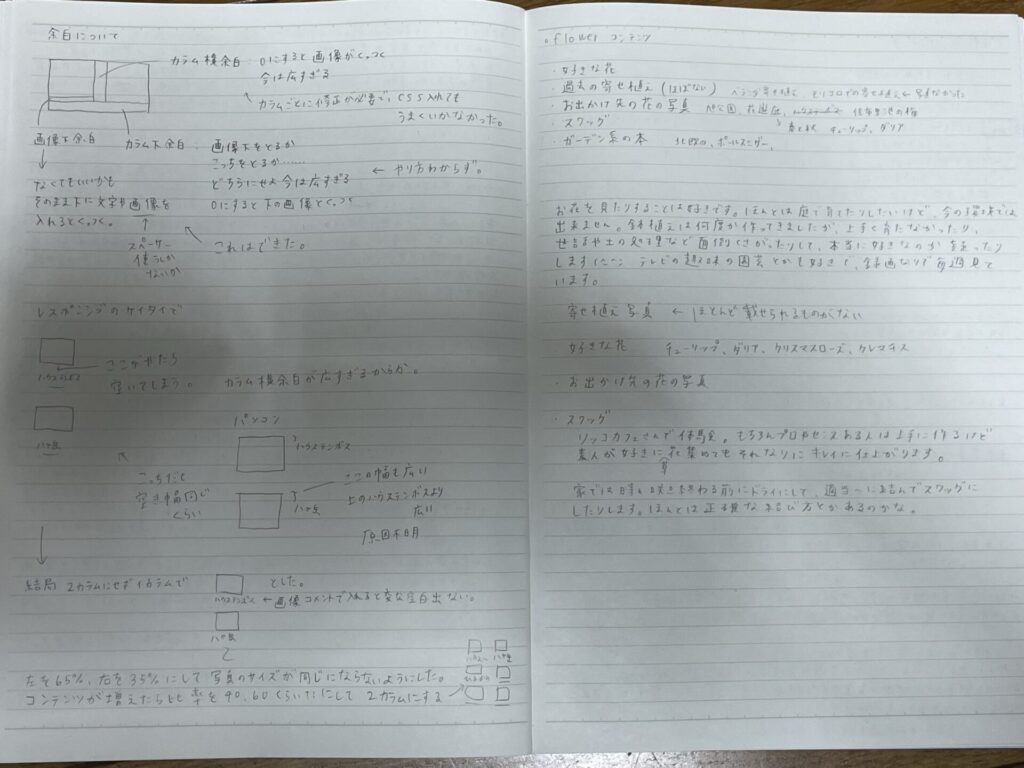 余白について
カラム横余白：0にすると画像がくっつく
今は広すぎる
カラムごとに修正が必要で、CSS入れても
うまくいかなかった。
画像下余白
カラム下余白：画像下をとるか
こっちをとるか……
どちらにせよ今は広すぎる ← やり方わからず。
0にすると下の画像とくっつく
なくてもいいかも
そのまま下に文字や画像を
入れるとくっつく。
スペーサー
使うしか
ないか
これはできた。
レスポンシブのケイタイで
ハウステンボス
ここがやたら
空いてしまう。 カラム横余白が広すぎるからか。
八ヶ岳
こっちだと
空き幅同じ
くらい
パソコン
ハウステンボス
ここの幅も広い
上のハウステンボスより
広い
八ヶ岳
原因不明
結局 2カラムにせず1カラムで
とした。
ハウステンボス ← 画像コメントで入れると変な空白出ない。
八ヶ岳
左を65%、右を35%にして写真のサイズが同じにならないようにした。
コンテンツが増えたら比率を40、60くらい？にして2カラムにする
・flower コンテンツ
・好きな花
・過去の寄せ植え（ほぼない）
・お出かけ先の花の写真
・スワッグ
チューリップ、ダリア
・ガーデン系の本
お花を見たりすることは好きです。ほんとは庭で育てたりしたいけど、今の環境では
出来ません。鉢植えは何度か作ってきましたが、上手く育たなかったり、
世話や土の処理など面倒くさがったりして、本当に好きなのか迷ったり
します テレビの趣味の園芸とかも好きで、録画なりで毎週見て
います。
寄せ植え写真 ← ほとんど載せられるものがない
好きな花 チューリップ、ダリア、クリスマスローズ、クレマチス
・お出かけ先の花の写真
・スワッグ
リッコカフェさんで体験会。もちろんプロやセンスある人は上手に作るけど
素人が好きに花集めてもそれなりにキレイに仕上がります。
家では時々咲き終わる前にドライにして、適当〜に結んでスワッグに
したりします。ほんとは正確な結び方とかあるのかな。